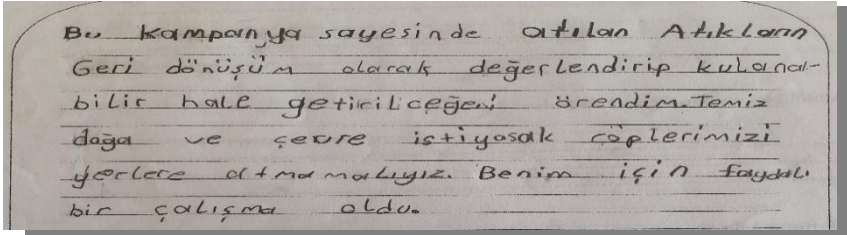 Bu kampanya sayesinde atılan Atıkların
Geri dönüşüm olarak değerlendirip kulanal-
bilir hale getiriliceğeni örendim. Temiz
doğa ve çevre istiyosak çöplerimizi
yerlere atmamalıyız. Benim için faydalı
bir çalışma oldu.